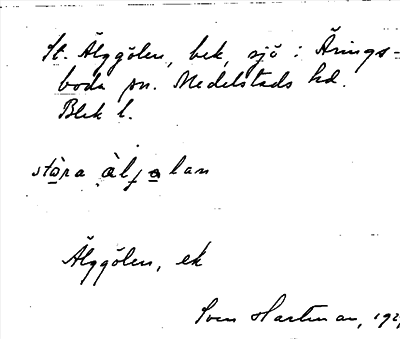 St. Älggölen, bek, sjö i Ärings-
boda sn. Medelstads hd.
Blek l.
stọ̀ra ä̀ljọlan
Älggölen, ek
Sven Hartman, 192